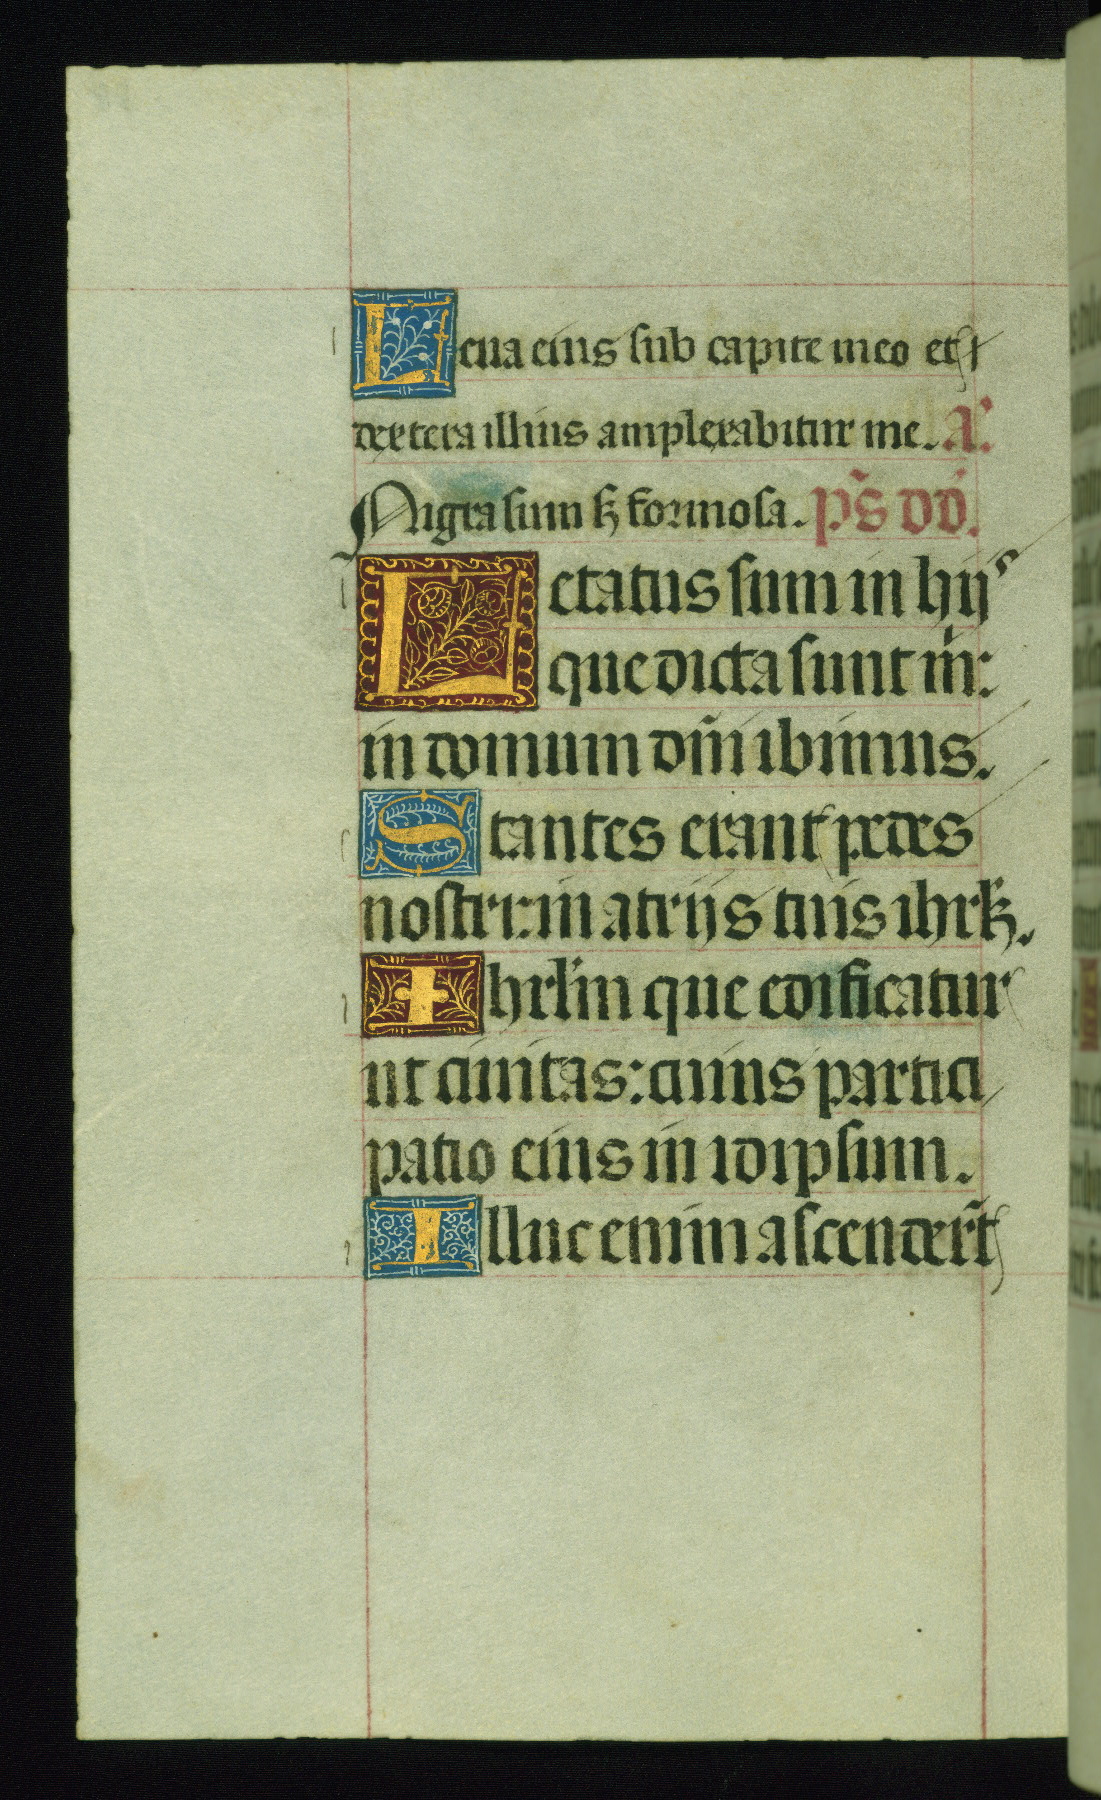 Leua eius sub capite meo et
dextera illius amplexabitur me. A͛.
Nigra sum sꝫ formosa. p̃s dd̛.
Letatus sum in hijs
que dicta sunt m̃:
in domum dñi ibimus.
Stantes erant pedes
nostri: in atrijs tuis ihrłꝫ.
Ihrl̃m que edificatur
ut ciuitas: cuius partici
patio eius in idipsum.
Illuc enim ascender̃t